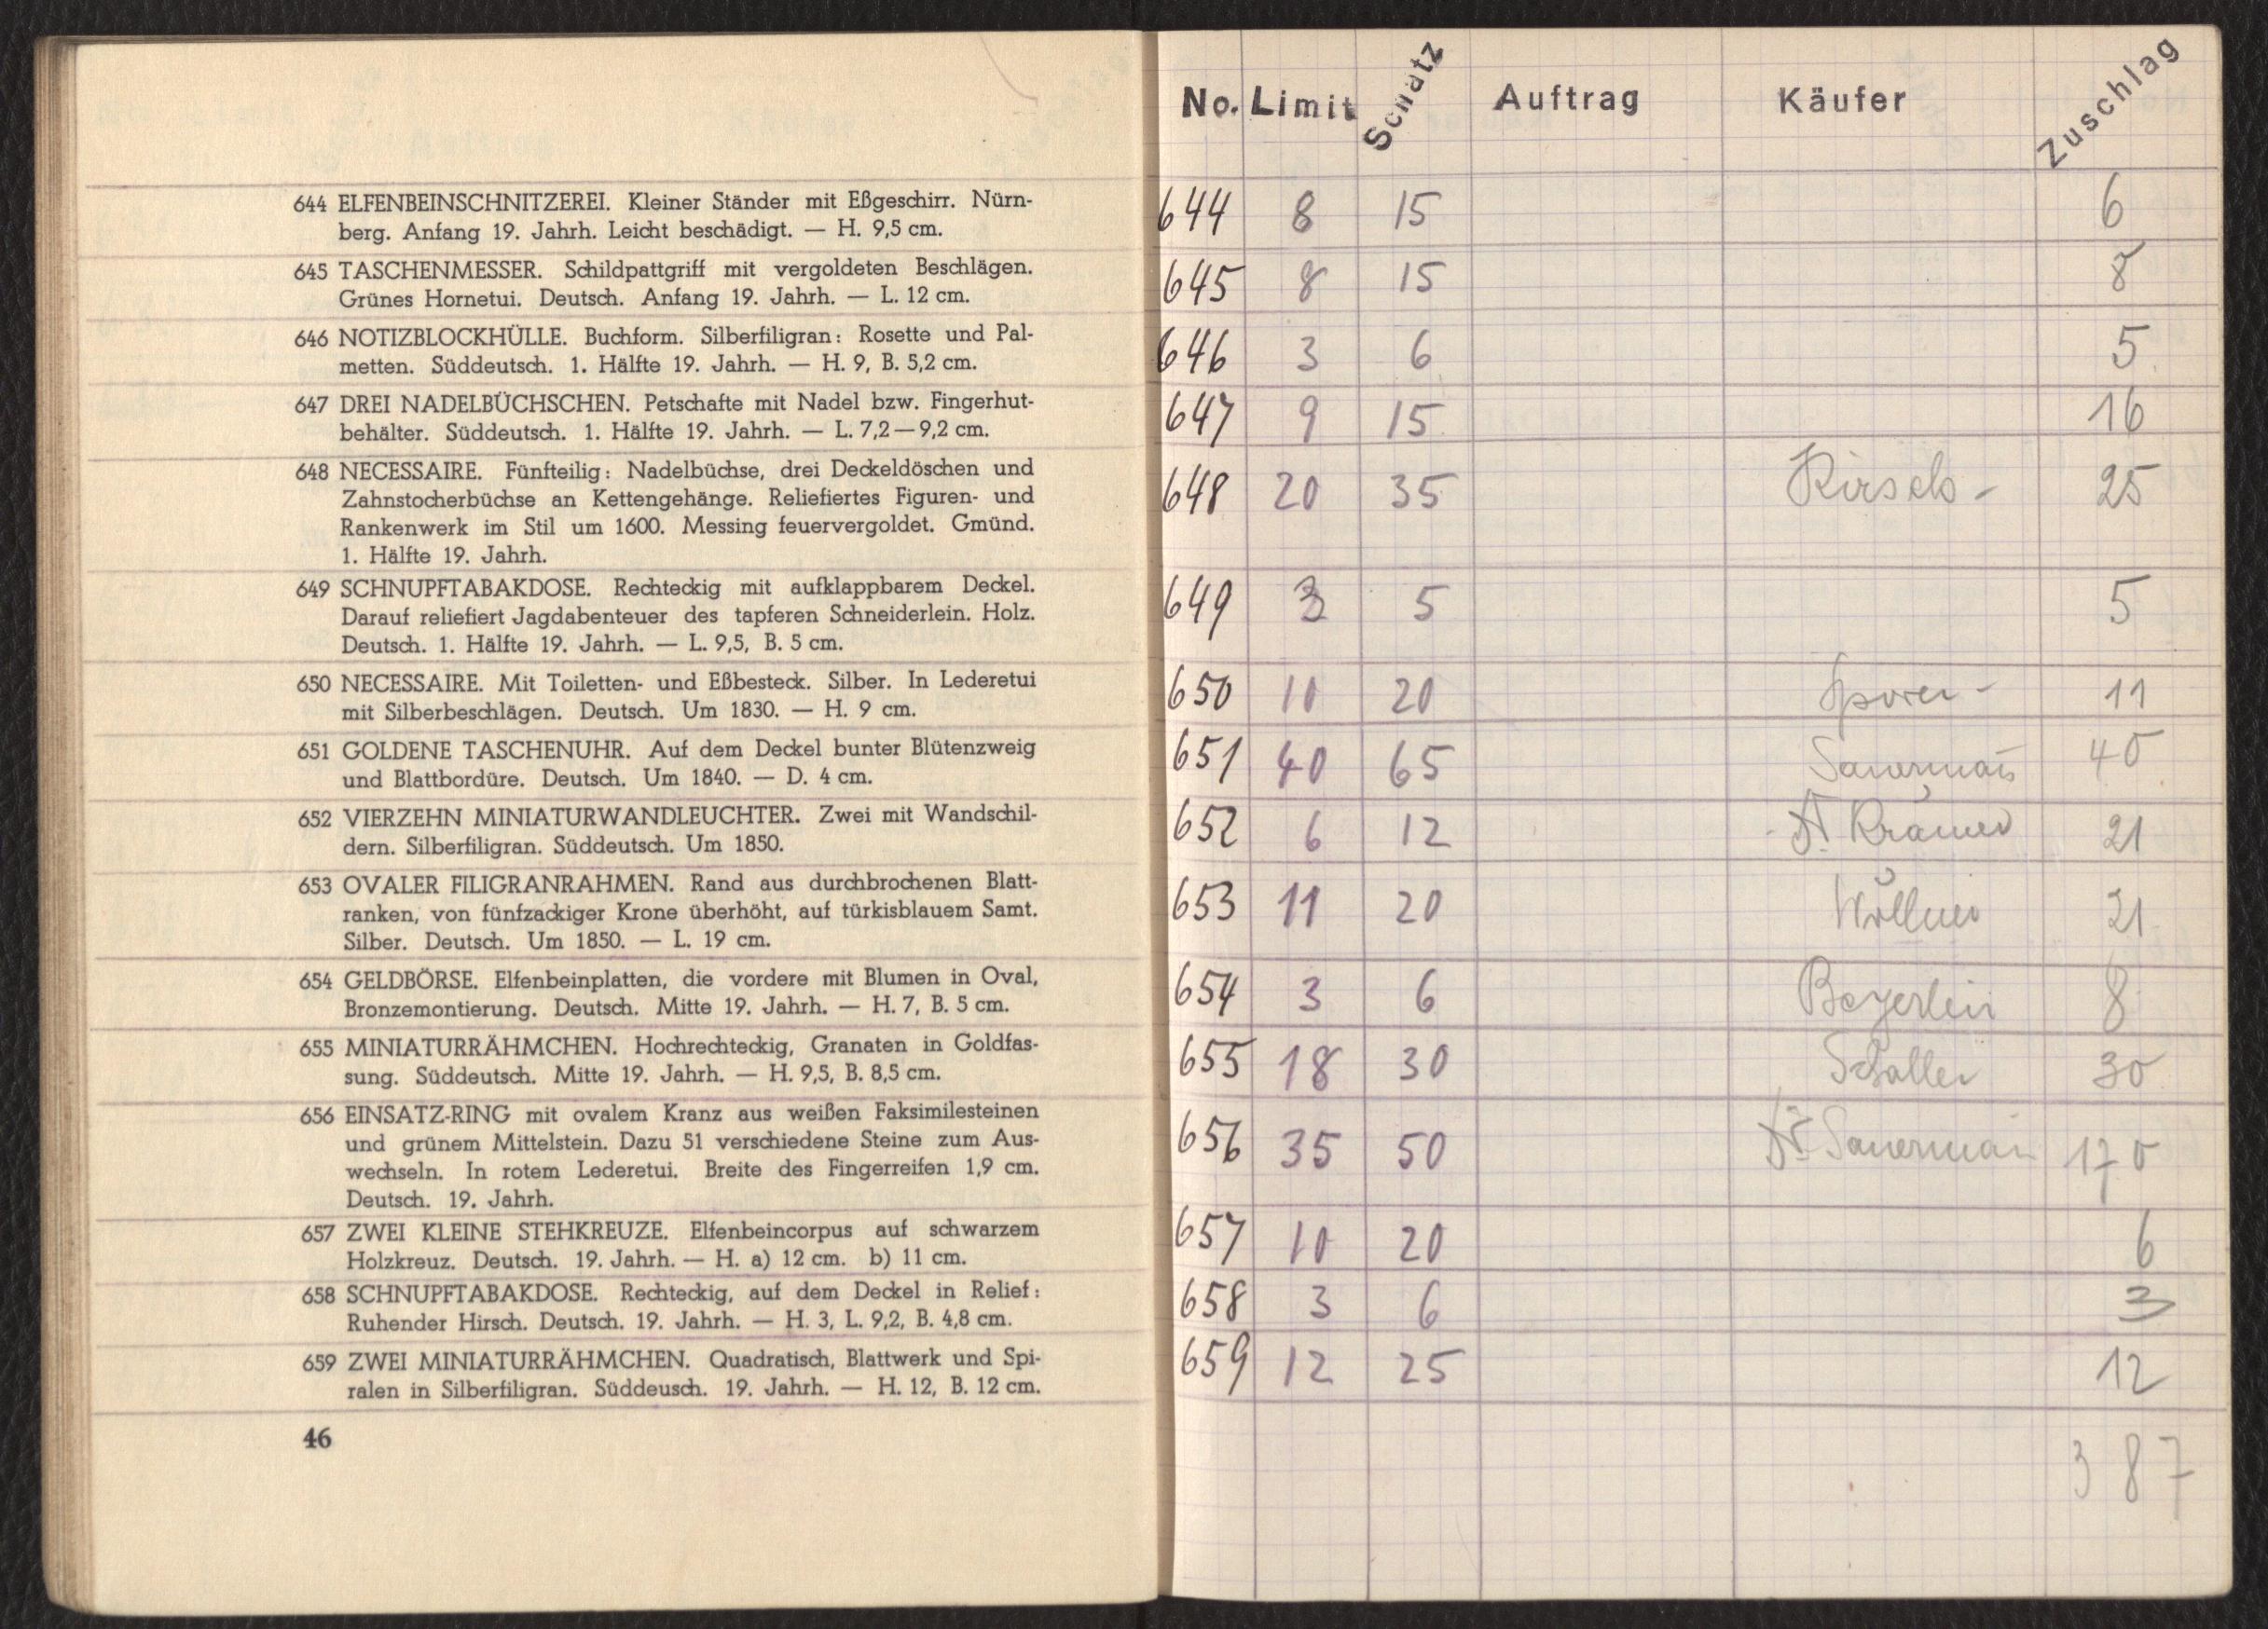 644 ELFENBEINSCHNITZEREI. Kleiner Ständer mit Eßgeschirr. Nürn-
berg. Anfang 19. Jahrh. Leicht beschädigt. — H. 9,5 cm.
645 TASCHENMESSER. Schildpattgriff mit vergoldeten Beschlägen.
Grünes Hornetui. Deutsch. Anfang 19. Jahrh. — L. 12 cm.
646 NOTIZBLOCKHÜLLE. Buchform. Silberfiligran: Rosette und Pal-
metten. Süddeutsch. 1. Hälfte 19. Jahrh. — H. 9, B. 5,2 cm.
647 DREI NADELBÜCHSCHEN. Petschafte mit Nadel bzw. Fingerhut-
behälter. Süddeutsch. 1. Hälfte 19. Jahrh. — L. 7,2—9,2 cm.
648 NECESSAIRE. Fünfteilig: Nadelbüchse, drei Deckeldöschen und
Zahnstocherbüchse an Kettengehänge. Reliefiertes Figuren- und
Rankenwerk im Stil um 1600. Messing feuervergoldet. Gmünd.
1. Hälfte 19. Jahrh.
649 SCHNUPFTABAKDOSE. Rechteckig mit aufklappbarem Deckel.
Darauf reliefiert Jagdabenteuer des tapferen Schneiderlein. Holz.
Deutsch. 1. Hälfte 19. Jahrh. — L. 9,5, B. 5 cm.
650 NECESSAIRE. Mit Toiletten- und Eßbesteck. Silber. In Lederetui
mit Silberbeschlägen. Deutsch. Um 1830. — H. 9 cm.
651 GOLDENE TASCHENUHR. Auf dem Deckel bunter Blütenzweig
und Blattbordüre. Deutsch. Um 1840. — D. 4 cm.
652 VIERZEHN MINIATURWANDLEUCHTER. Zwei mit Wandschil-
dern. Silberfiligran. Süddeutsch. Um 1850.
653 OVALER FILIGRANRAHMEN. Rand aus durchbrochenen Blatt-
ranken, von fünfzackiger Krone überhöht, auf türkisblauem Samt.
Silber. Deutsch. Um 1850. — L. 19 cm.
654 GELDBÖRSE. Elfenbeinplatten, die vordere mit Blumen in Oval,
Bronzemontierung. Deutsch. Mitte 19. Jahrh. — H. 7, B. 5 cm.
655 MINIATURRÄHMCHEN. Hochrechteckig, Granaten in Goldfas-
sung. Süddeutsch. Mitte 19. Jahrh. — H. 9,5, B. 8,5 cm.
656 EINSATZ-RING mit ovalem Kranz aus weißen Faksimilesteinen
und grünem Mittelstein. Dazu 51 verschiedene Steine zum Aus-
wechseln. In rotem Lederetui. Breite des Fingerreifen 1,9 cm.
Deutsch. 19. Jahrh.
657 ZWEI KLEINE STEHKREUZE. Elfenbeincorpus auf schwarzem
Holzkreuz. Deutsch. 19. Jahrh. — H. a) 12 cm. b) 11 cm.
658 SCHNUPFTABAKDOSE. Rechteckig, auf dem Deckel in Relief:
Ruhender Hirsch. Deutsch. 19. Jahrh. — H. 3, L. 9,2, B. 4,8 cm.
659 ZWEI MINIATURRÄHMCHEN. Quadratisch, Blattwerk und Spi-
ralen in Silberfiligran. Süddeusch. 19. Jahrh. — H. 12, B. 12 cm.
46
No. Limit Schatz Auftrag Käufer Zuschlag
644 8 15 6
645 8 15 8
646 3 6 5
647 9 15 16
648 20 35 25
649 3 5 5
650 10 20 11
651 40 65 40
652 6 12 Krämer 21
653 11 20 Wöllner 21
654 3 6 Beyerlein 8
655 18 30 Schaller 30
656 35 50 170
657 10 20 6
658 3 6 3
659 12 25 12
387